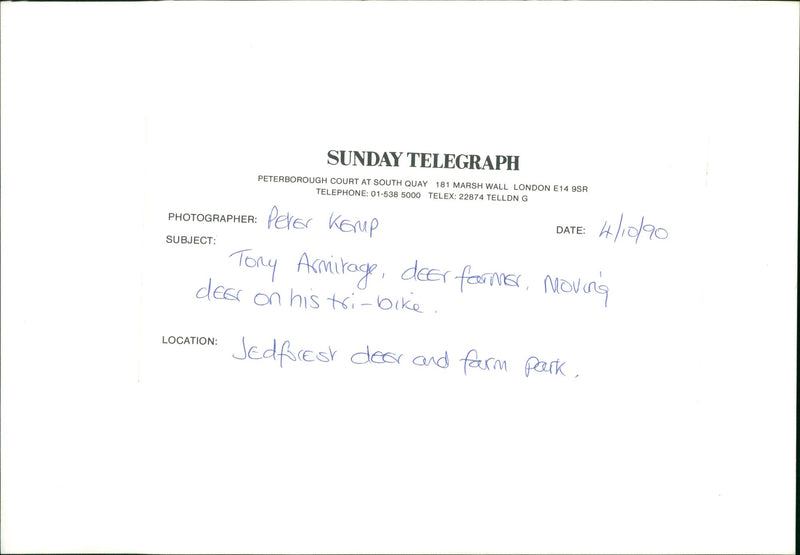 SUNDAY TELEGRAPH
PETERBOROUGH COURT AT SOUTH QUAY 181 MARSH WALL LONDON E14 9SR
TELEPHONE: 01-538 5000 TELEX: 22874 TELLDN G
PHOTOGRAPHER: Peter Kemp DATE: 4/10/90
SUBJECT:
Tony Armitage, deer farmer. Moving
deer on his tri-bike.
LOCATION: Jedforest deer and farm park.